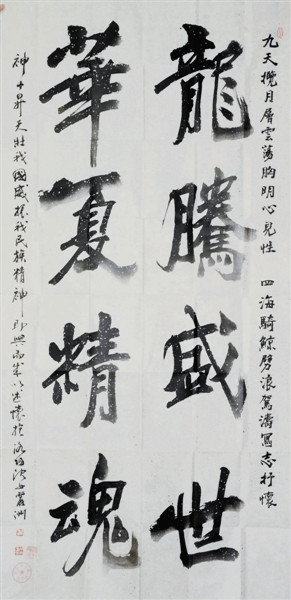 九天攬月層雲蕩胸明心見性 四海騎鯨劈浪駕濤寫志抒懷
龍騰盛世
華夏精魂
神十昇天壯我國威我民族精神即興而